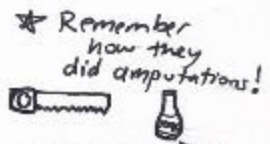 ★ Remember
how they
did amputations!